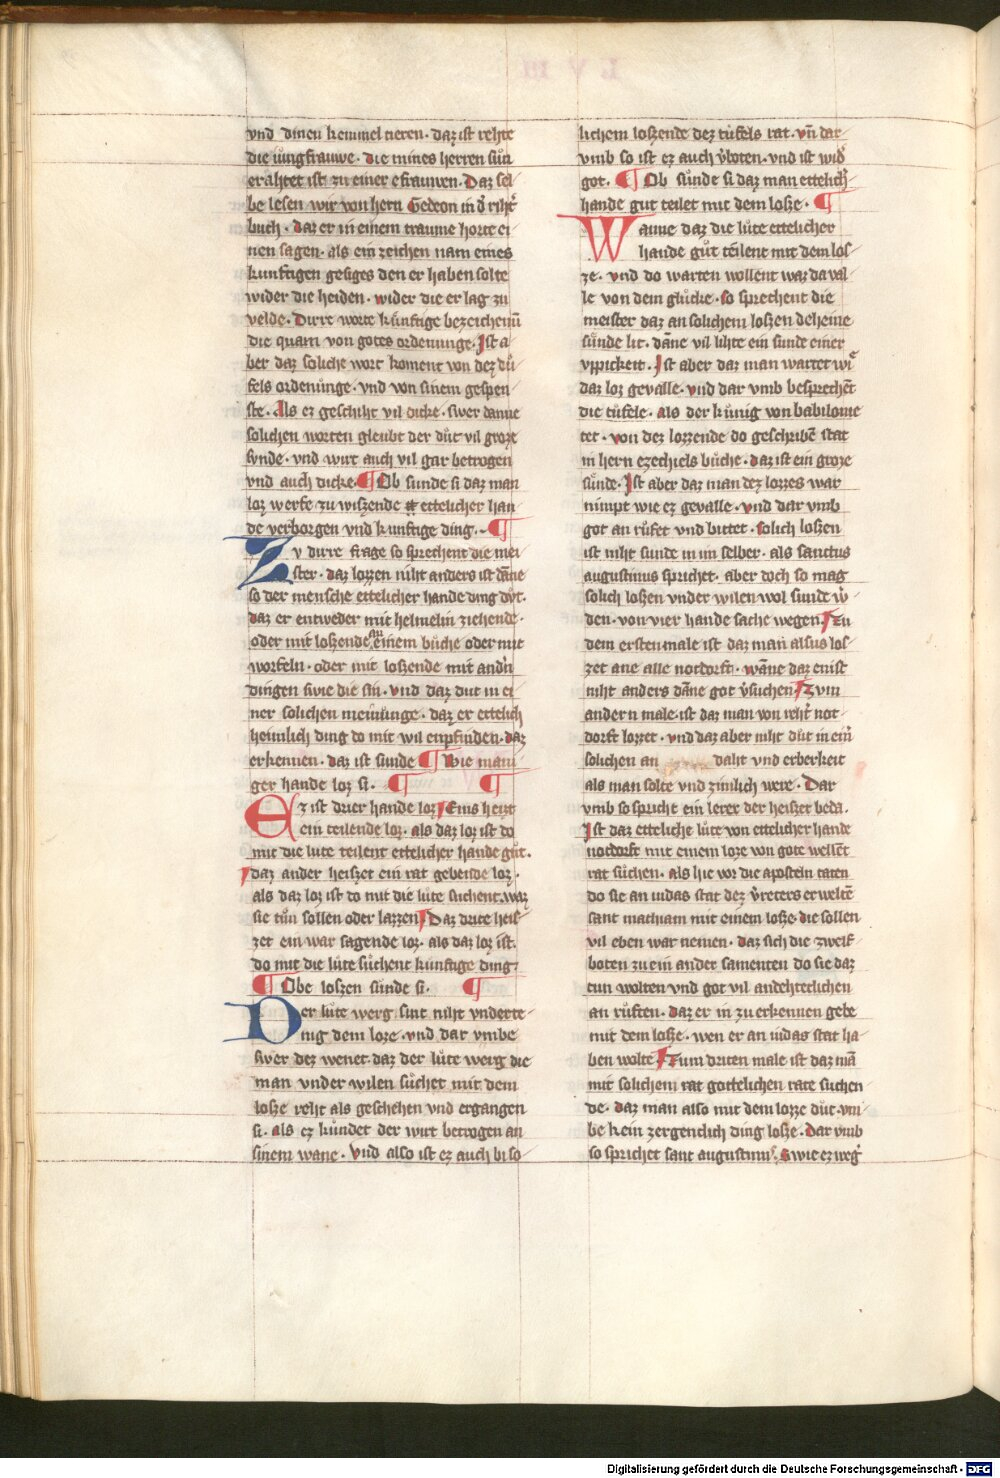 vnd dinen kemmel tieren. daz ist rehte
die iungfrauwe. die mines herren sun
erahtet ist zu einer efrauwen. Daz sel-
be lesen wir von hern Gedeon in d' riht'
buch. daz er in einem traume horte ei-
nen sagen. als ein zeichen nam eines
kunftigen gesiges den er haben solte
wider die heiden. wider die er lag zu
velde. Dirre worte künftige bezeichenū
die quam von gotes ordenunge. Ist a-
ber daz soliche wort koment von dez dü-
fels ordenünge. vnd von sinem gespen-
ste. Als ez geschiht vil dicke. swer danne
solichen worten gleubt der dut vil groze
synde. vnd wirt auch vil gar betrogen
vnd auch dicke. ¶ Ob sunde si daz man
loz werfe zu wiszende ettelicher han-
de verborgen vnd kunftige ding. ¶
Zv dirre frage so sprechent die mei-
ster. daz lozzen niht anders ist dāne
so der mensche ettelicher hande ding dut.
daz er entweder mit helmelin ziehende.
oder mit loszende an einem büche oder mit
worfeln. oder mit loszende mit and'n
dingen swie die sin. vnd daz dut in ei-
ner solichen meinunge. daz er ettelich
heimlich ding do mit wil enpfinden. daz
erkennen. daz ist sunde ¶ Wie mani-
ger hande loz si. ¶ ¶
Ez ist drier hande loz. Eins heizt
ein teilende loz. als daz loz ist do
mit die lute teilent ettelicher hande gut.
daz ander heiszet ein rat gebende loz.
als daz loz ist do mit die lute suchent. waz
sie tün sollen oder lazzen. Daz drite heis-
zet ein war sagende loz. als daz loz ist.
do mit die lüte süchent kunftige ding
¶ Obe loszen sünde si. ¶
Der lüte werg sint niht vnderte-
nig dem loze. vnd dar vmbe
swer dez wenet daz der lüte werg die
man vnder wilen süchet mit dem
losze reht als geschehen vnd ergangen
si. als ez kündet der wirt betrogen an
sinem wane. Vnd also ist ez auch bi so-
lichem loszende dez tüfels rat. vn̄ dar-
vmb so ist ez auch v'boten. vnd ist wid'
got. ¶ Ob sünde si daz man ettelich'-
hande gut teilet mit dem losze. ¶
Wanne daz die lüte ettelicher
hande güt teilent mit dem los-
ze. vnd do warten wollent waz da val-
le von dem glücke. so sprechent die
meister daz an solichem loszen deheine
sünde lit. dāne vil lihte ein sunde einer
vppickeit. Ist aber daz man wartet wi
daz loz gevalle. vnd dar vmb besprechēt
die tüfele. als der künig von babilonie
tet. von dez lozzende do geschribē stat
in hern ezechiels büche. daz ist ein groze
sünde. Ist aber daz man dez lozzes war
nimpt wie ez gevalle. vnd dar vmb
got an rüfet vnd bittet. solich loszen
ist niht sunde in im selber. als sanctus
augustinus sprichet. aber doch so mag
solich loszen vnder wilen wol sunde w'-
den. von vier hande sache wegen. Zu
dem ersten male ist daz man alsus los-
zet ane alle notdorft. wāne daz enist
niht anders dāne got v'suchen. Zvm
andern male. ist daz man von reht' not-
dorft lozzet. vnd daz aber niht düt in ein'
solichen an daht vnd erberkeit
als man solte vnd zimlich were. Dar
vmb so spricht ein lerer der heiszet beda.
Ist daz etteliche lüte von ettelicher hande
notdorft mit einem loze von gote wellēt
rat süchen. als hie vor die aposteln taten
do sie an iudas stat dez v'reters erweltē
sant mathiam mit einem losze. die sollen
vil eben war nemen. daz sich die zwelf-
boten zu ein ander samenten do sie daz
tun wolten vnd got vil andehteclichen
an rüften. daz er in zu erkennen gebe
mit dem losze. wen er an iudas stat ha-
ben wolte. Zum driten male ist daz mā
mit solichem rat gottelichen rate suchen-
de. daz man also mit dem lozze düt. vm-
be kein zergenclich ding losze. Dar vmb
so sprichet sant augustinu'. Swie ez weg'
Digitalisierung gefördert durch die Deutsche Forschungsgemeinschaft - DFG